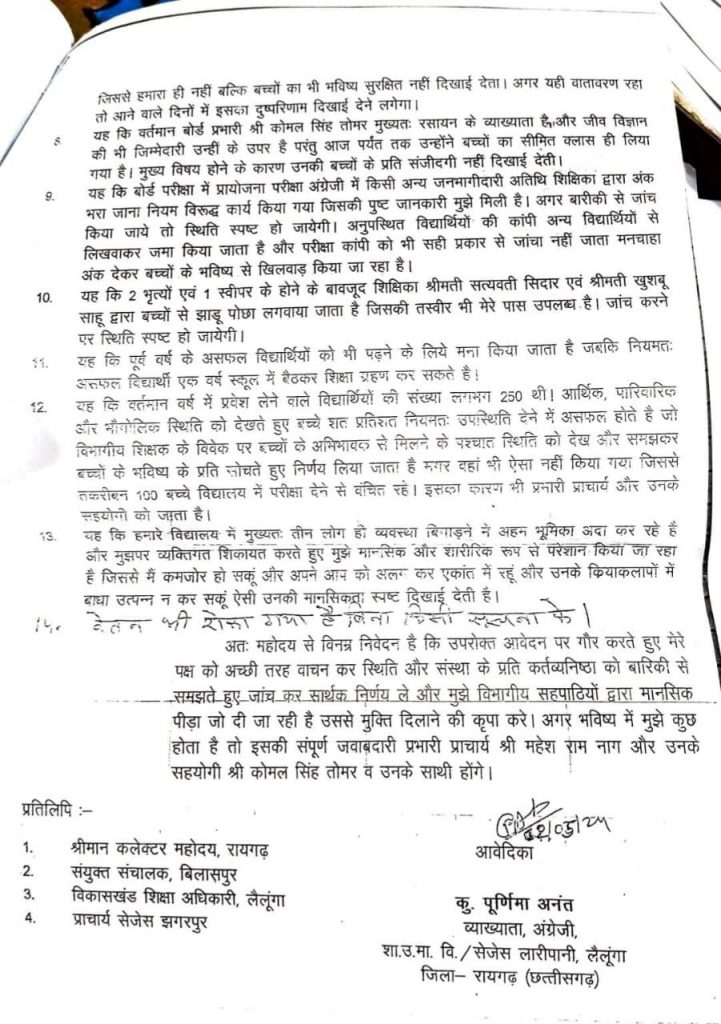 जिससे हमारा ही नहीं बल्कि बच्चों का भी भविष्य सुरक्षित नहीं दिखाई देता। अगर यही वातावरण रहा
तो आने वाले दिनों में इसका दुष्परिणाम दिखाई देने लगेगा।
8. यह कि वर्तमान बोर्ड प्रभारी श्री कोमल सिंह तोमर मुख्यतः रसायन के व्याख्याता है, और जीव विज्ञान
की भी जिम्मेदारी उन्हीं के उपर है परंतु आज पर्यंत तक उन्होंने बच्चों का सीमित क्लास ही लिया
गया है। मुख्य विषय होने के कारण उनकी बच्चों के प्रति संजीदगी नहीं दिखाई देती।
9. यह कि बोर्ड परीक्षा में प्रायोजना परीक्षा अंग्रेजी में किसी अन्य जनमागीदारी अतिथि शिक्षिका द्वारा अंक
भरा जाना नियम विरूद्ध कार्य किया गया जिसकी पुष्ट जानकारी मुझे मिली है। अगर बारीकी से जांच
किया जाये तो स्थिति स्पष्ट हो जायेगी। अनुपस्थित विद्यार्थियों की कांपी अन्य विद्यार्थियों से
लिखवाकर जमा किया जाता है और परीक्षा कांपी को भी सही प्रकार से जांचा नहीं जाता मनचाहा
अंक देकर बच्चों के भविष्य से खिलवाड़ किया जा रहा है।
10. यह कि 2 भृत्यों एवं 1 स्वीपर के होने के बावजूद शिक्षिका श्रीमती सत्यवती सिदार एवं श्रीमती खुशबू
साहू द्वारा बच्चों से झाडू पोछा लगवाया जाता है जिसकी तस्वीर भी मेरे पास उपलब्ध है। जांच करने
पर स्थिति स्पष्ट हो जायेगी।
11. यह कि पूर्व वर्ष के असफल विद्यार्थियों को भी पढ़ने के लिये मना किया जाता है जबकि नियमतः
असफल विद्यार्थी एक वर्ष स्कूल में बैठकर शिक्षा ग्रहण कर सकते है।
12. यह कि वर्तमान वर्ष में प्रवेश लेने वाले विद्यार्थियों की संख्या लगभग 250 थी। आर्थिक, पारिवारिक
और भौगोलिक स्थिति को देखते हुए बच्चे शत प्रतिशत नियमतः उपस्थिति देने में असफल होते है जो
विभागीय शिक्षक के विवेक पर बच्चों के अभिभावक से मिलने के पश्चात स्थिति को देख और समझकर
बच्चों के भविष्य के प्रति सोचते हुए निर्णय लिया जाता है मगर वहां भी ऐसा नहीं किया गया जिससे
तकरीबन 100 बच्चे विद्यालय में परीक्षा देने से वंचित रहे। इसका कारण भी प्रभारी प्राचार्य और उनके
सहयोगी को जाता है।
13. यह कि हमारे विद्यालय में मुख्यतः तीन लोग ही व्यवस्था बिगाड़ने में अहम भूमिका अदा कर रहे है
और मुझपर व्यक्तिगत शिकायत करते हुए मुझे मानसिक और शारीरिक रूप से परेशान किया जा रहा
है जिससे मैं कमजोर हो सकूं और अपने आप को अलग कर एकांत में रहूं और उनके कियाकलापों में
बाधा उत्पन्न न कर सकूं ऐसी उनकी मानसिकता स्पष्ट दिखाई देती है।
14. वेतन भी रोका गया है बिना किसी सूचना के।
अतः महोदय से विनम्र निवेदन है कि उपरोक्त आवेदन पर गौर करते हुए मेरे
पक्ष को अच्छी तरह वाचन कर स्थिति और संस्था के प्रति कर्तव्यनिष्ठा को बारिकी से
समझते हुए जांच कर सार्थक निर्णय ले और मुझे विभागीय सहपाठियों द्वारा मानसिक
पीड़ा जो दी जा रही है उससे मुक्ति दिलाने की कृपा करे। अगर भविष्य में मुझे कुछ
होता है तो इसकी संपूर्ण जवाबदारी प्रभारी प्राचार्य श्री महेश राम नाग और उनके
सहयोगी श्री कोमल सिंह तोमर व उनके साथी होंगे।
प्रतिलिपि :–
1. श्रीमान कलेक्टर महोदय, रायगढ़
2. संयुक्त संचालक, बिलासपुर
3. विकासखंड शिक्षा अधिकारी, लैलूंगा
4. प्राचार्य सेजेस झगरपुर
आवेदिका
कु. पूर्णिमा अनंत
व्याख्याता, अंग्रेजी,
शा.उ.मा. वि./सेजेस लारीपानी, लैलूंगा
जिला– रायगढ़ (छत्तीसगढ़)